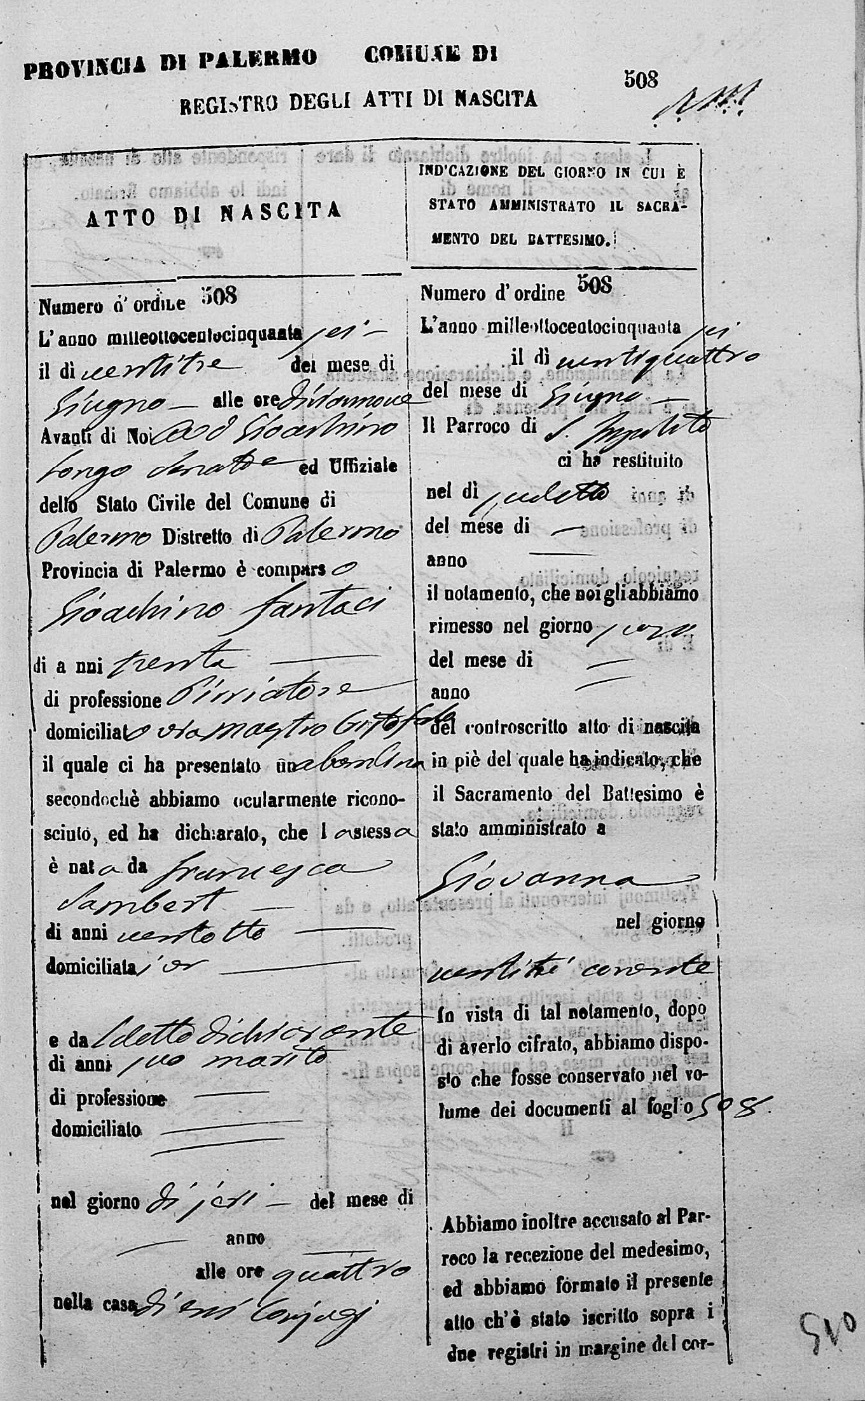 PROVINCIA DI PALERMO COMUNE DI
508
REGISTRO DEGLI ATTI DI NASCITA
ATTO DI NASCITA
Numero d'ordine 508
L'anno milleottocentocinquanta sei
il dì ventitre del mese di
Giugno alle ore diciannove
Avanti di Noi Gioachino
Longo ed Uffiziale
dello Stato Civile del Comune di
Palermo Distretto di Palermo
Provincia di Palermo è comparso
Gioachino Fantaci
di anni trenta
di professione
domiciliato via mastro Cristofalo
il quale ci ha presentato una bambina
secondochè abbiamo ocularmente ricono-
sciuto, ed ha dichiarato, che la stessa
è nata da Francesca
Lambert
di anni ventotto
domiciliata ivi
e da detto dichiarante
di anni suo marito
di professione
domiciliato
nel giorno di jeri del mese di
anno
alle ore quattro
nella casa di essi Conjugi
INDICAZIONE DEL GIORNO IN CUI È
STATO AMMINISTRATO IL SACRA-
MENTO DEL BATTESIMO.
Numero d'ordine 508
L'anno milleottocentocinquanta sei
il dì ventiquattro
del mese di Giugno
Il Parroco di S. Ippolito
ci ha restituito
nel dì sudetto
del mese di
anno
il notamento, che noi gli abbiamo
rimesso nel giorno
del mese di
anno
del controscritto atto di nascita
in piè del quale ha indicato, che
il Sacramento del Battesimo è
stato amministrato a
Giovanna
nel giorno
ventitré corrente
In vista di tal notamento, dopo
di averlo cifrato, abbiamo dispo-
sto che fosse conservato nel vo-
lume dei documenti al foglio 508.
Abbiamo inoltre accusato al Par-
roco la recezione del medesimo,
ed abbiamo formato il presente
atto ch'è stato iscritto sopra i
due registri in margine del cor-
510